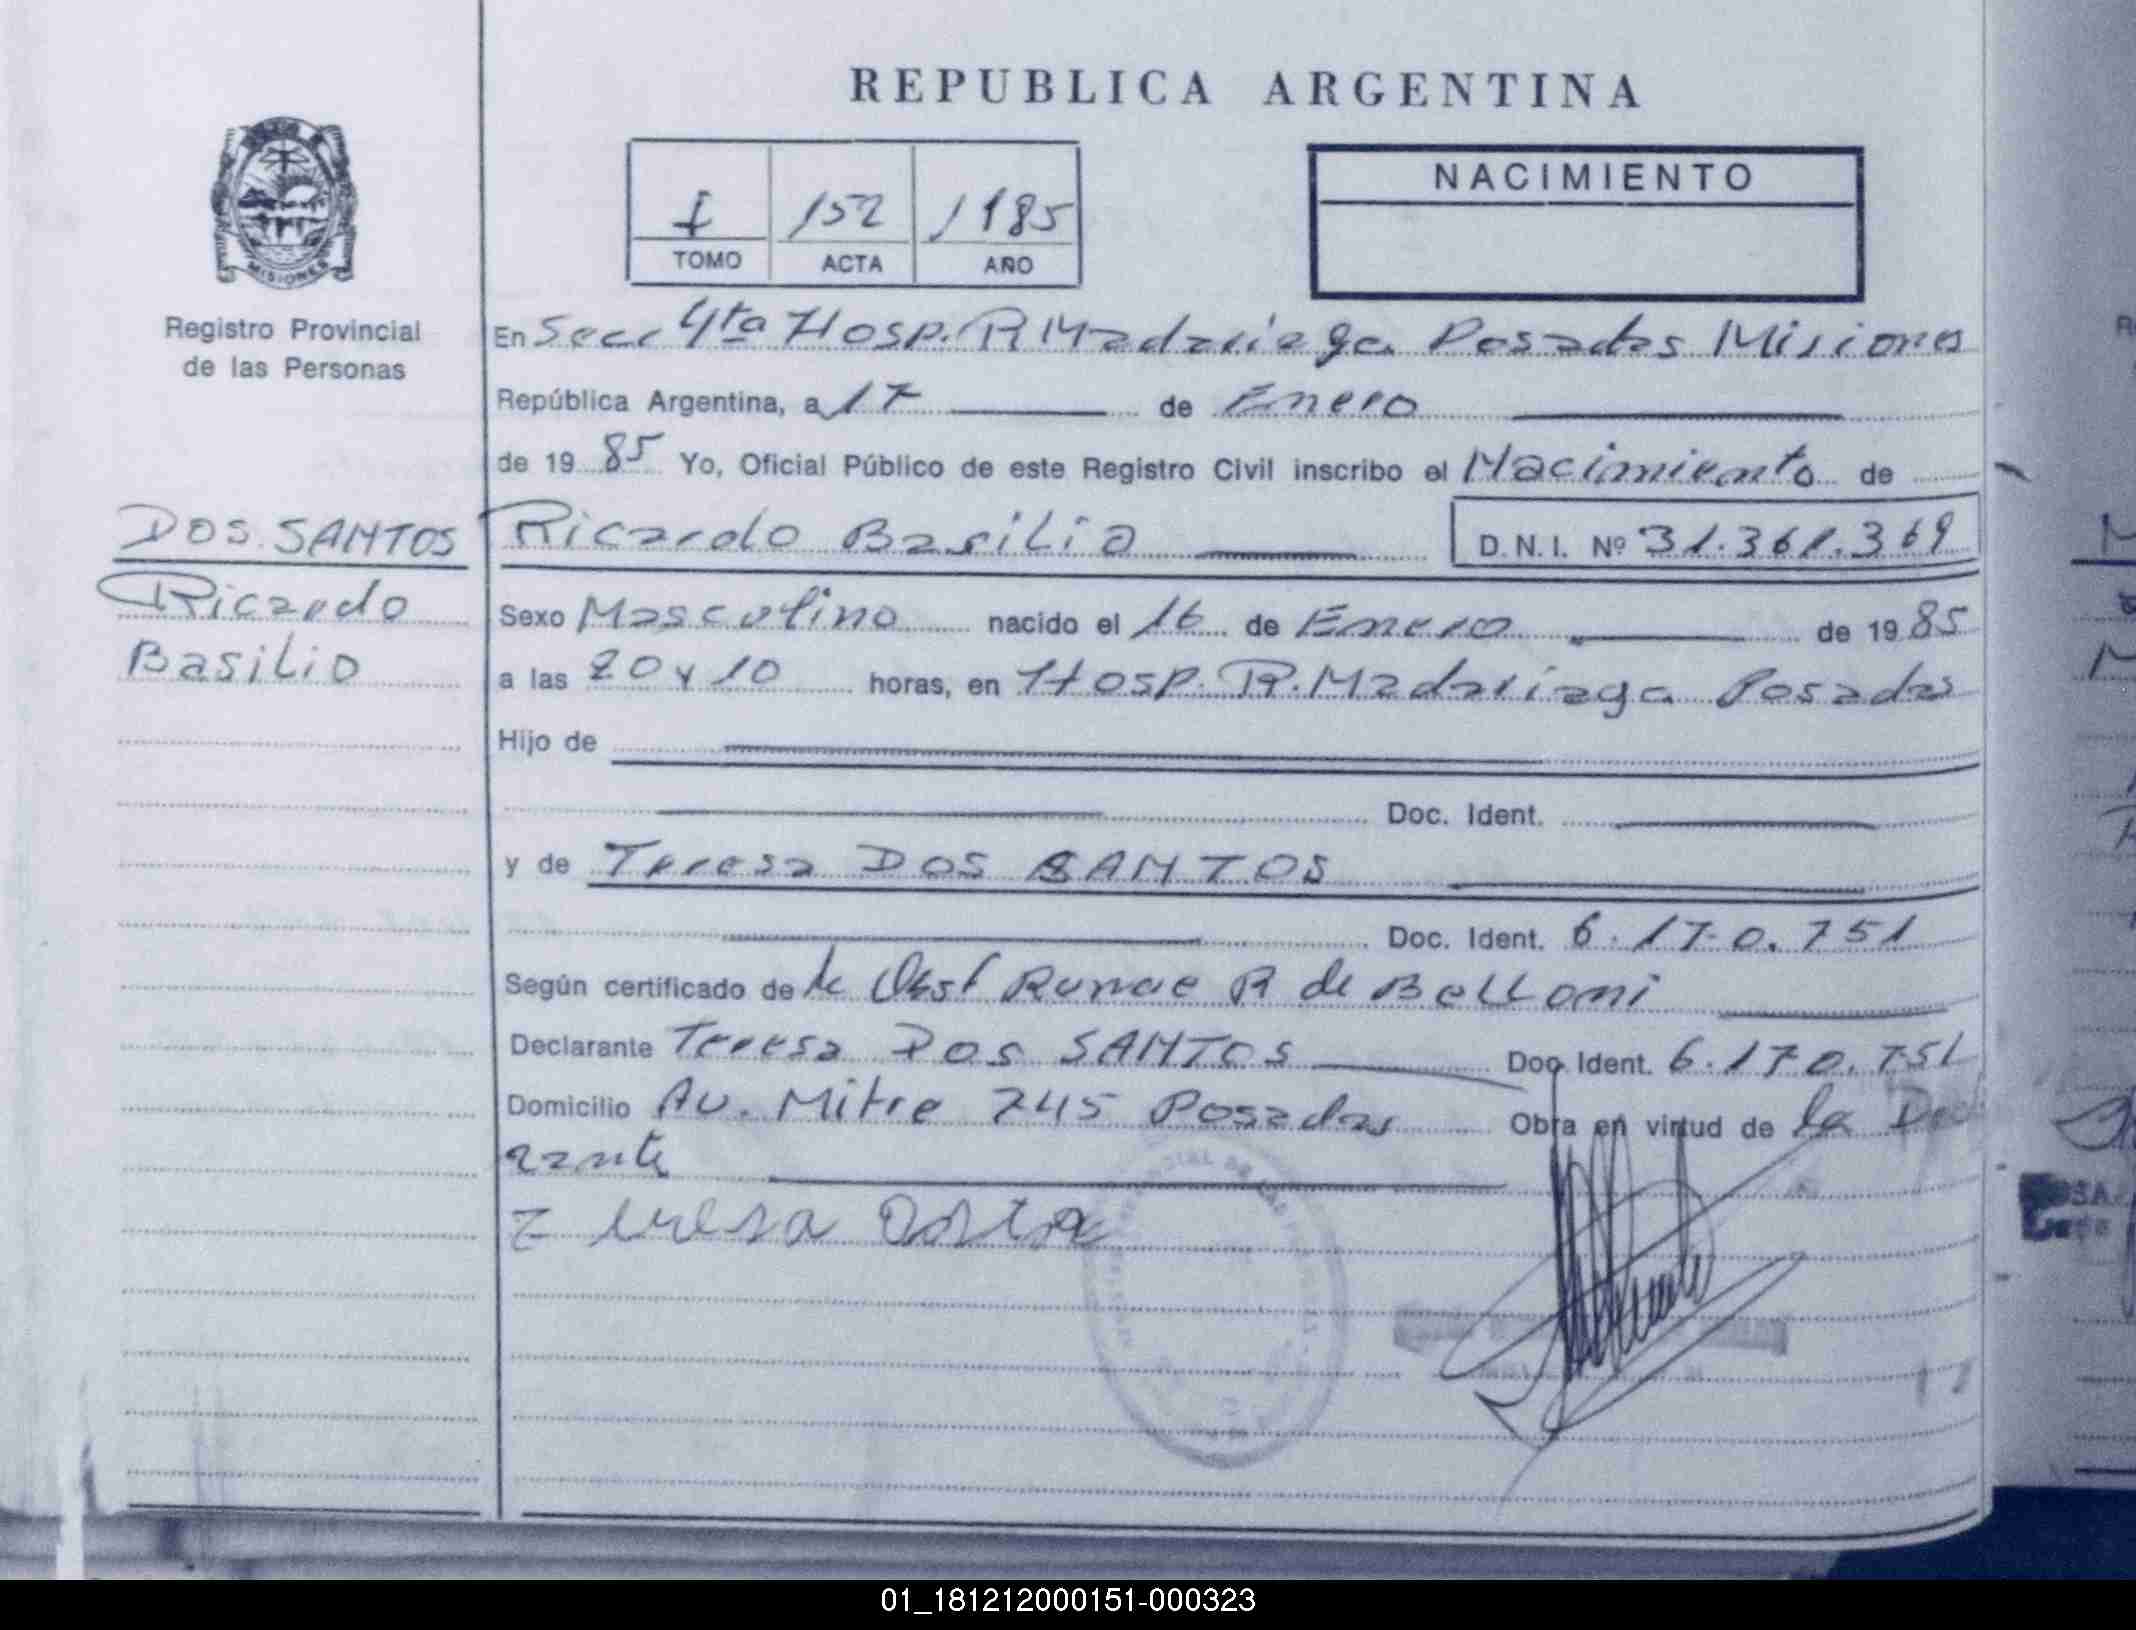 REPUBLICA ARGENTINA
MISIONES
Registro Provincial
de las Personas
I 152 1985
TOMO ACTA AÑO
NACIMIENTO
En Secc 4ta Hosp. R Madariaga Posadas Misiones
República Argentina, a 17 de Enero
de 19 85 Yo, Oficial Público de este Registro Civil inscribo el Nacimiento de
DOS SANTOS
Ricardo
Basilio
Ricardo Basilio D.N.I. Nº 31.361.369
Sexo Masculino nacido el 16 de Enero de 19 85
a las 20 y 10 horas, en Hosp. R. Madariaga Posadas
Hijo de
Doc. Ident.
y de Teresa DOS SANTOS
Doc. Ident. 6.170.751
Según certificado de la Obst R de Belloni
Declarante Teresa Dos SANTOS Doc. Ident. 6.170.751
Domicilio Av. Mitre 245 Posadas Obra en virtud de la Decl
arante
Teresa
01_181212000151-000323